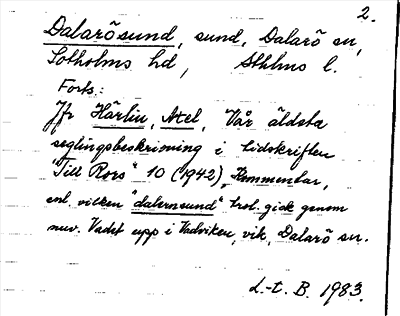 2.
Dalarösund, sund, Dalarö sn,
Sotholms hd, Sthlms l.
Forts.:
Jfr Härlin, Axel, Vår äldsta
seglingsbeskrivning i tidskriften
"Till Rors" 10 (1942), Kommentar,
enl. vilken "dalernsund" trol. gick genom
nuv. Vadet upp i Vadviken, vik, Dalarö sn.
L-t. B. 1983.